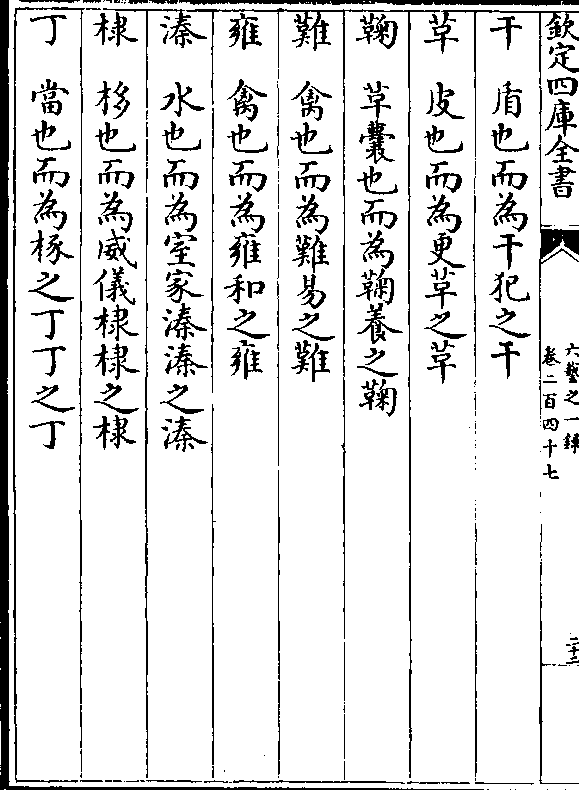 欽定四庫全書
六藝之一錄
卷二百四十七
二十二
干 盾也而為干犯之干
草 皮也而為更草之草
鞠 草囊也而為鞠養之鞠
難 禽也而為難易之難
雍 禽也而為雍和之雍
溱 水也而為室家溱溱之溱
棣 栘也而為威儀棣棣之棣
丁 當也而為椓之丁丁之丁